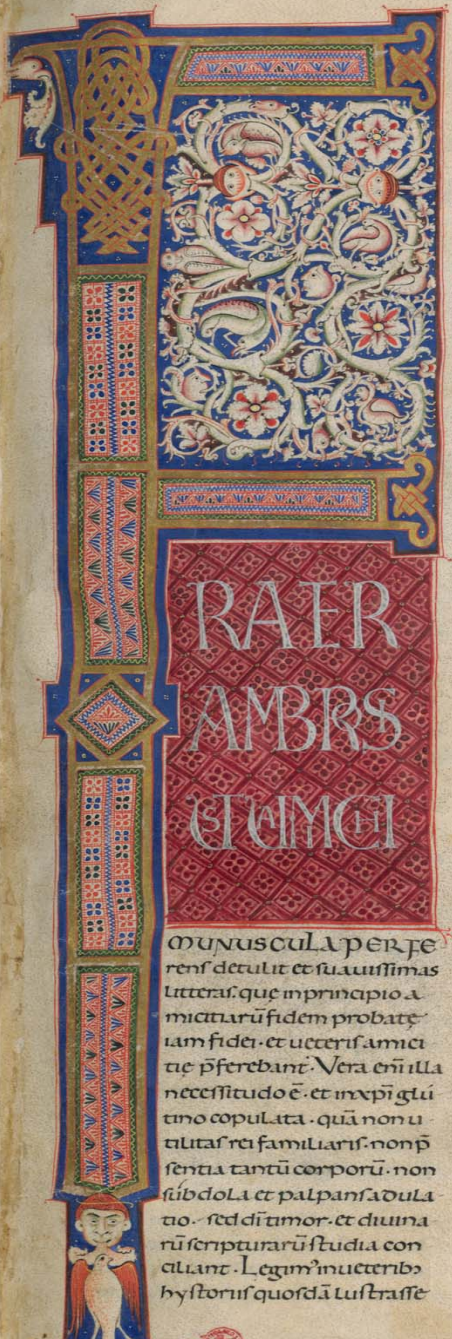 F
RATER
AMBROS
IUS TUA MICHI
MUNUSCULA PERFE
renſ detulit et ſuauiſſimas
litteraſ. que in principio a
micitiarū fidem probatę
iam fidei · et ueteriſ amici
tię p̄ferebant · Vera eni illa
neceſſitudo ē · et in xp̄i glu
tino copulata · quā non u
tilitaſ rei familiariſ · non p̄
ſentia tantū corporū · non
ſubdola et palpanſ adula
tio · ſed dī timor · et diuina
rū ſcripturarū ſtudia con
ciliant · Legim᾽ in ueterib;
hyſtoriiſ quoſdā luſtraſſe